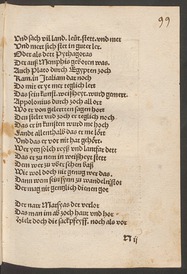 99
Vnd sich vil land, leüt, stett, vnd mer
Vnd mert sich stet in guter ler.
Oder als dett Pythagoras
Der auß Memphis geboren was.
Auch Plato durch Egypten zoch
Kam in Italiam dar noch
Do mit er ye mer teglich lert
Das sein kunst, weißheyt, wurd gemert.
Appolonius durch zoch all ort
Wo er von gelerten sagen hort
Den stelet vnd zoch er teglich noch
Das er in künsten wurd me hoch
Fande allenthalb das er me lört
Vnd das er vor nit hat gehört.
Wer yetz solch reyß vnd lantfar dett
Das er zu nem in weißheyt stett
Dem wer zu vber sehen baß
Wie wol doch nit genug wer das.
Dann wem sein synn zu wandeln stot
Der mag nit gentzlich dienen got
Der narr Marsyas der verlor
Das man im ab zoch haut vnd hor
Hielt doch die sackpfeiff, noch als vor
N ij